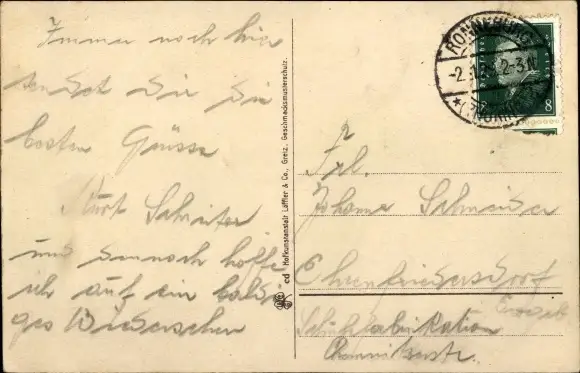 Immer noch hier
sendet Sie die
besten Grüsse
Kurt Schreiter
und dennoch hoffe
ich auf ein baldi
ges Wiedersehen
cd Hofkunstanstalt Löffler & Co., Greiz. Geschmacksmusterschutz.
RONNEBURG
8
Frl.
Johanne Schneider
Ehrenfriedersdorf
Erzgeb
Schuhfabrikation
Chemnitzerstr.